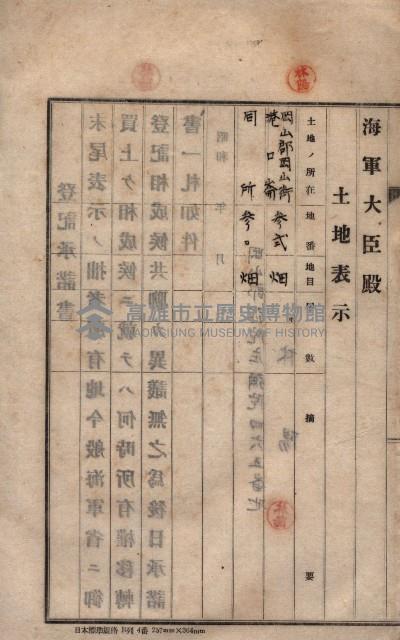 海軍大臣殿
土地表示
土地ノ所在 地番 地目 數 摘 要
岡山郡岡山街
港口崙 参弍 畑
同所 参〇 畑
昭和 年 月
書一札如件
登記相成候共聊カ異議無之爲後日承諾
買上ケ相成候ニ就テハ何時所有權移轉
末尾表示ノ拙者所有地今般海軍省ニ御
登記承諾書
高雄市立歷史博物館
KAOHSIUNG MUSEUM OF HISTORY
林陽
林陽
日本標準規格 B列 4番 257mm×364mm